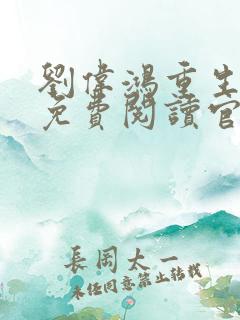 劉偉鴻重生
免費閱讀官
長岡太一
未經同意禁止轉載